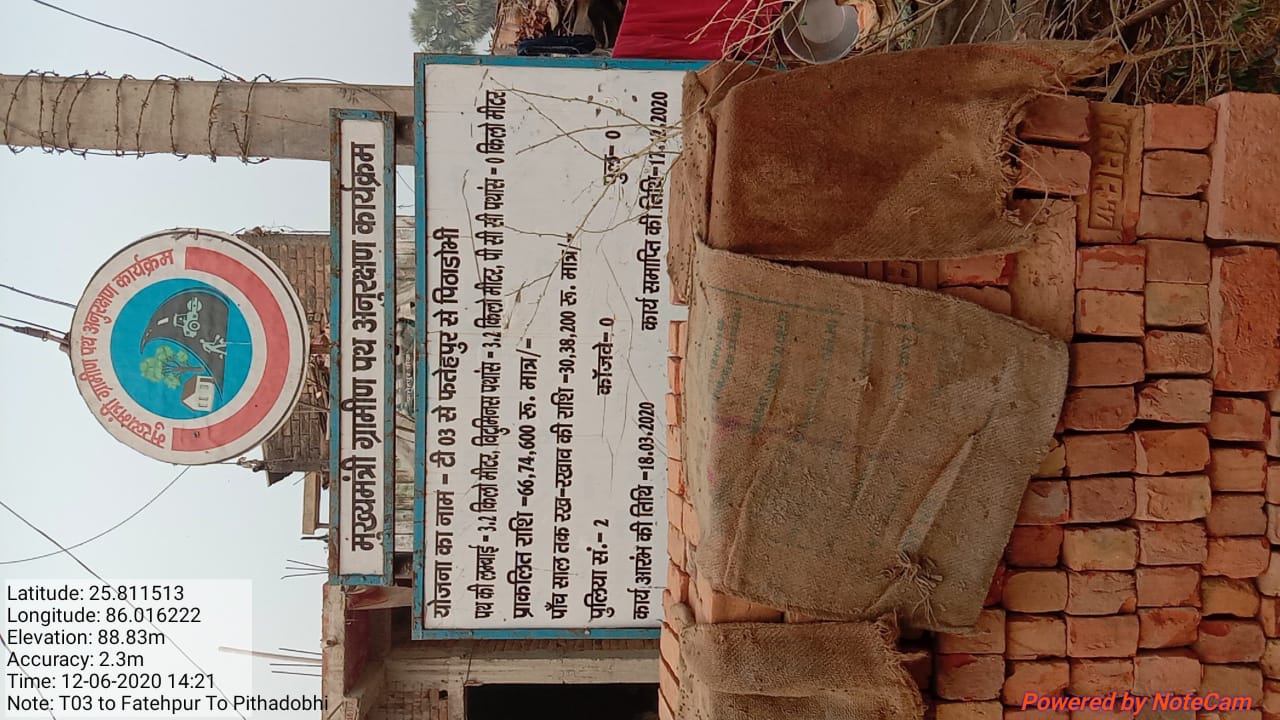 मुख्यमंत्री ग्रामीण पथ अनुरक्षण कार्यक्रम
मुख्यमंत्री ग्रामीण पथ अनुरक्षण कार्यक्रम
योजना का नाम - टी 03 से फतेहपुर से पिठाडोभी
पथ की लम्बाई = 3.2 किलो मीटर, विटुमिनस पथांस = 3.2 किलो मीटर, पी सी सी पथांस = 0 किलो मीटर
प्राकलित राशि =66,74,600 रु. मात्र/=
पाँच साल तक रख-रखाव की राशि =30,38,200 रु. मात्र/=
पुलिया सं.= 2 कॉजवे= 0 पुल= 0
कार्य आरंभ की तिथि =18.03.2020 कार्य समाप्ति की तिथि=17.12.2020
Latitude: 25.811513
Longitude: 86.016222
Elevation: 88.83m
Accuracy: 2.3m
Time: 12-06-2020 14:21
Note: T03 to Fatehpur To Pithadobhi
Powered by NoteCam